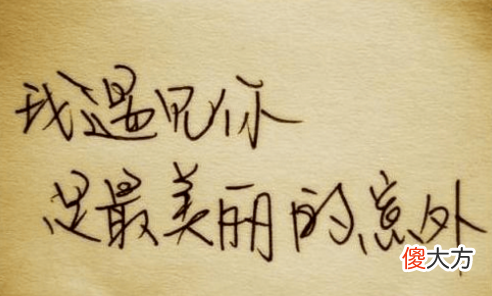 我遇见你
是最美丽的意外
傻大方